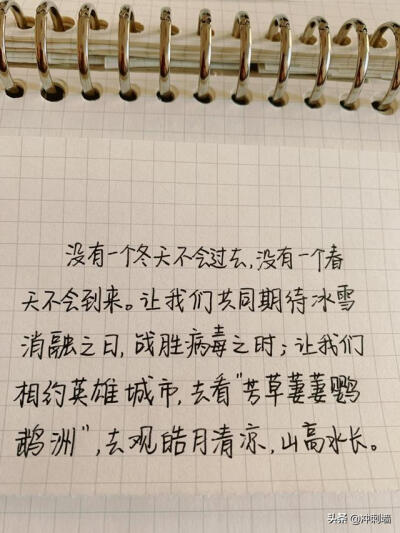 没有一个冬天不会过去，没有一个春
天不会到来。让我们共同期待冰雪
消融之日，战胜病毒之时；让我们
相约英雄城市，去看“芳草萋萋鹦
鹉洲”，去观皓月清凉，山高水长。
头条 @冲刺喵